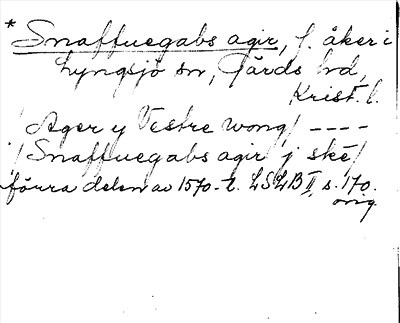 * Snaffuegabs agir, f. åker i
Lyngsjö sn, Gärds hd,
Krist. l.
/ Ager y Vestre wong / ----
/ Snaffuegabs agir j ske /
förra delen av 1570-t. LSLB II, s. 170.
orig